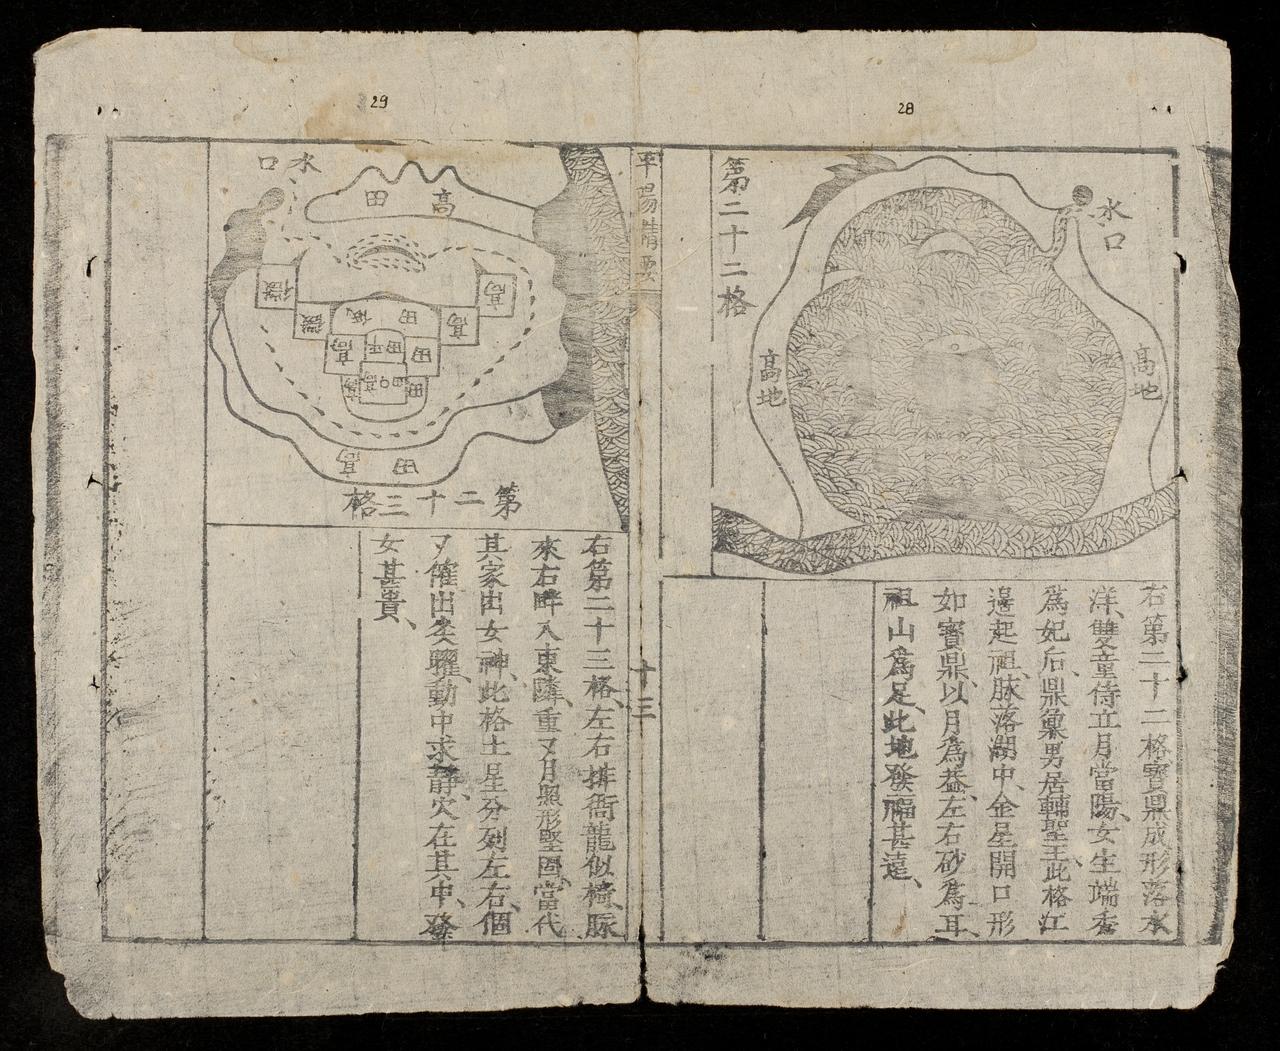 28
第二十二格
水口
高地
高地
右第二十二格寳鼎成形落水
洋、雙童侍立月當陽、女生端秀
爲妃后、鼎彙男居輔聖王、此格江
邊起祖、脉落湖中、金星開口形
如寳鼎、以月爲益、左右砂爲耳、
祖山爲足、此地發福甚遠、
平陽精要
十三
29
水口
高田
高
高
田
田平
田
高
高
高
田
高
田
第二十三格
右第二十三格、左右排衙龍似椅、脉
來右畔入東隣、重又月照形堅固、當代
其家出女神、此格土星分列左右、個
又催出矣曜、動中求靜、穴在其中、發
女甚貴、